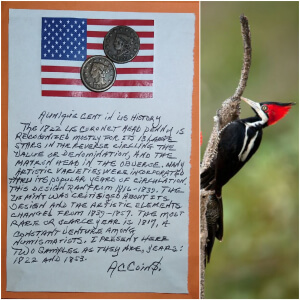 A UNIQUE CENT IN US HISTORY
THE 1822 US CORONET HEAD PENNY IS
RECOGNIZED MOSTLY FOR ITS LARGE
STARS IN THE REVERSE CIRCLING THE
VALUE OR DENOMINATION, AND THE
MATRON HEAD IN THE OBVERSE. MANY
ARTISTIC VARIETIES WERE INCORPORATED
THRU ITS POPULAR YEARS OF CIRCULATION.
THIS DESIGN RAN FROM 1816-1839. THE
US MINT WAS CRITISIZED ABOUT ITS
DESIGN AND THE ARTISTIC ELEMENTS
CHANGED FROM 1839-1857. THE MOST
RARE OR SCARCE YEAR IS 1817, A
CONSTANT VENTURE AMONG
NUMISMATISTS. I PRESENT HERE
TWO SAMPLES AS THEY ARE, YEARS:
1822 AND 1853.
AC COINS.